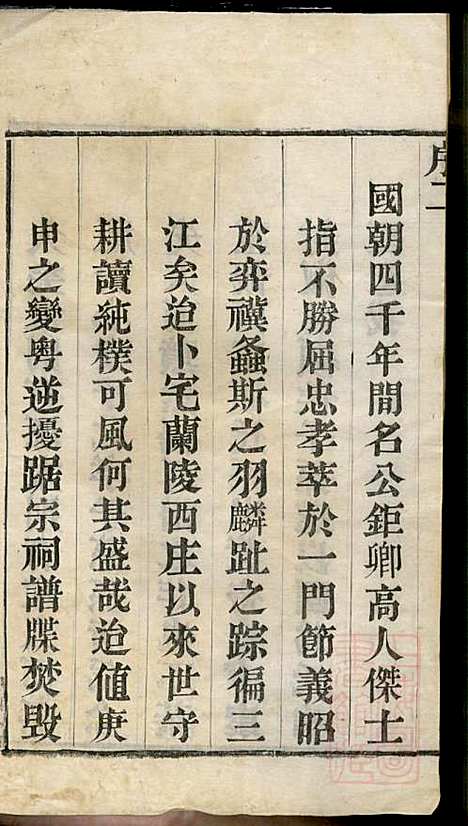 序二
國朝四千年間名公鉅卿高人傑士
指不勝屈忠孝萃於一門節義昭
於弈禩螽斯之羽麟趾之踪徧三
江矣迨卜宅蘭陵西庄以來世守
耕讀純樸可風何其盛哉迨值庚
申之變粵逆擾踞宗祠譜牒焚毁